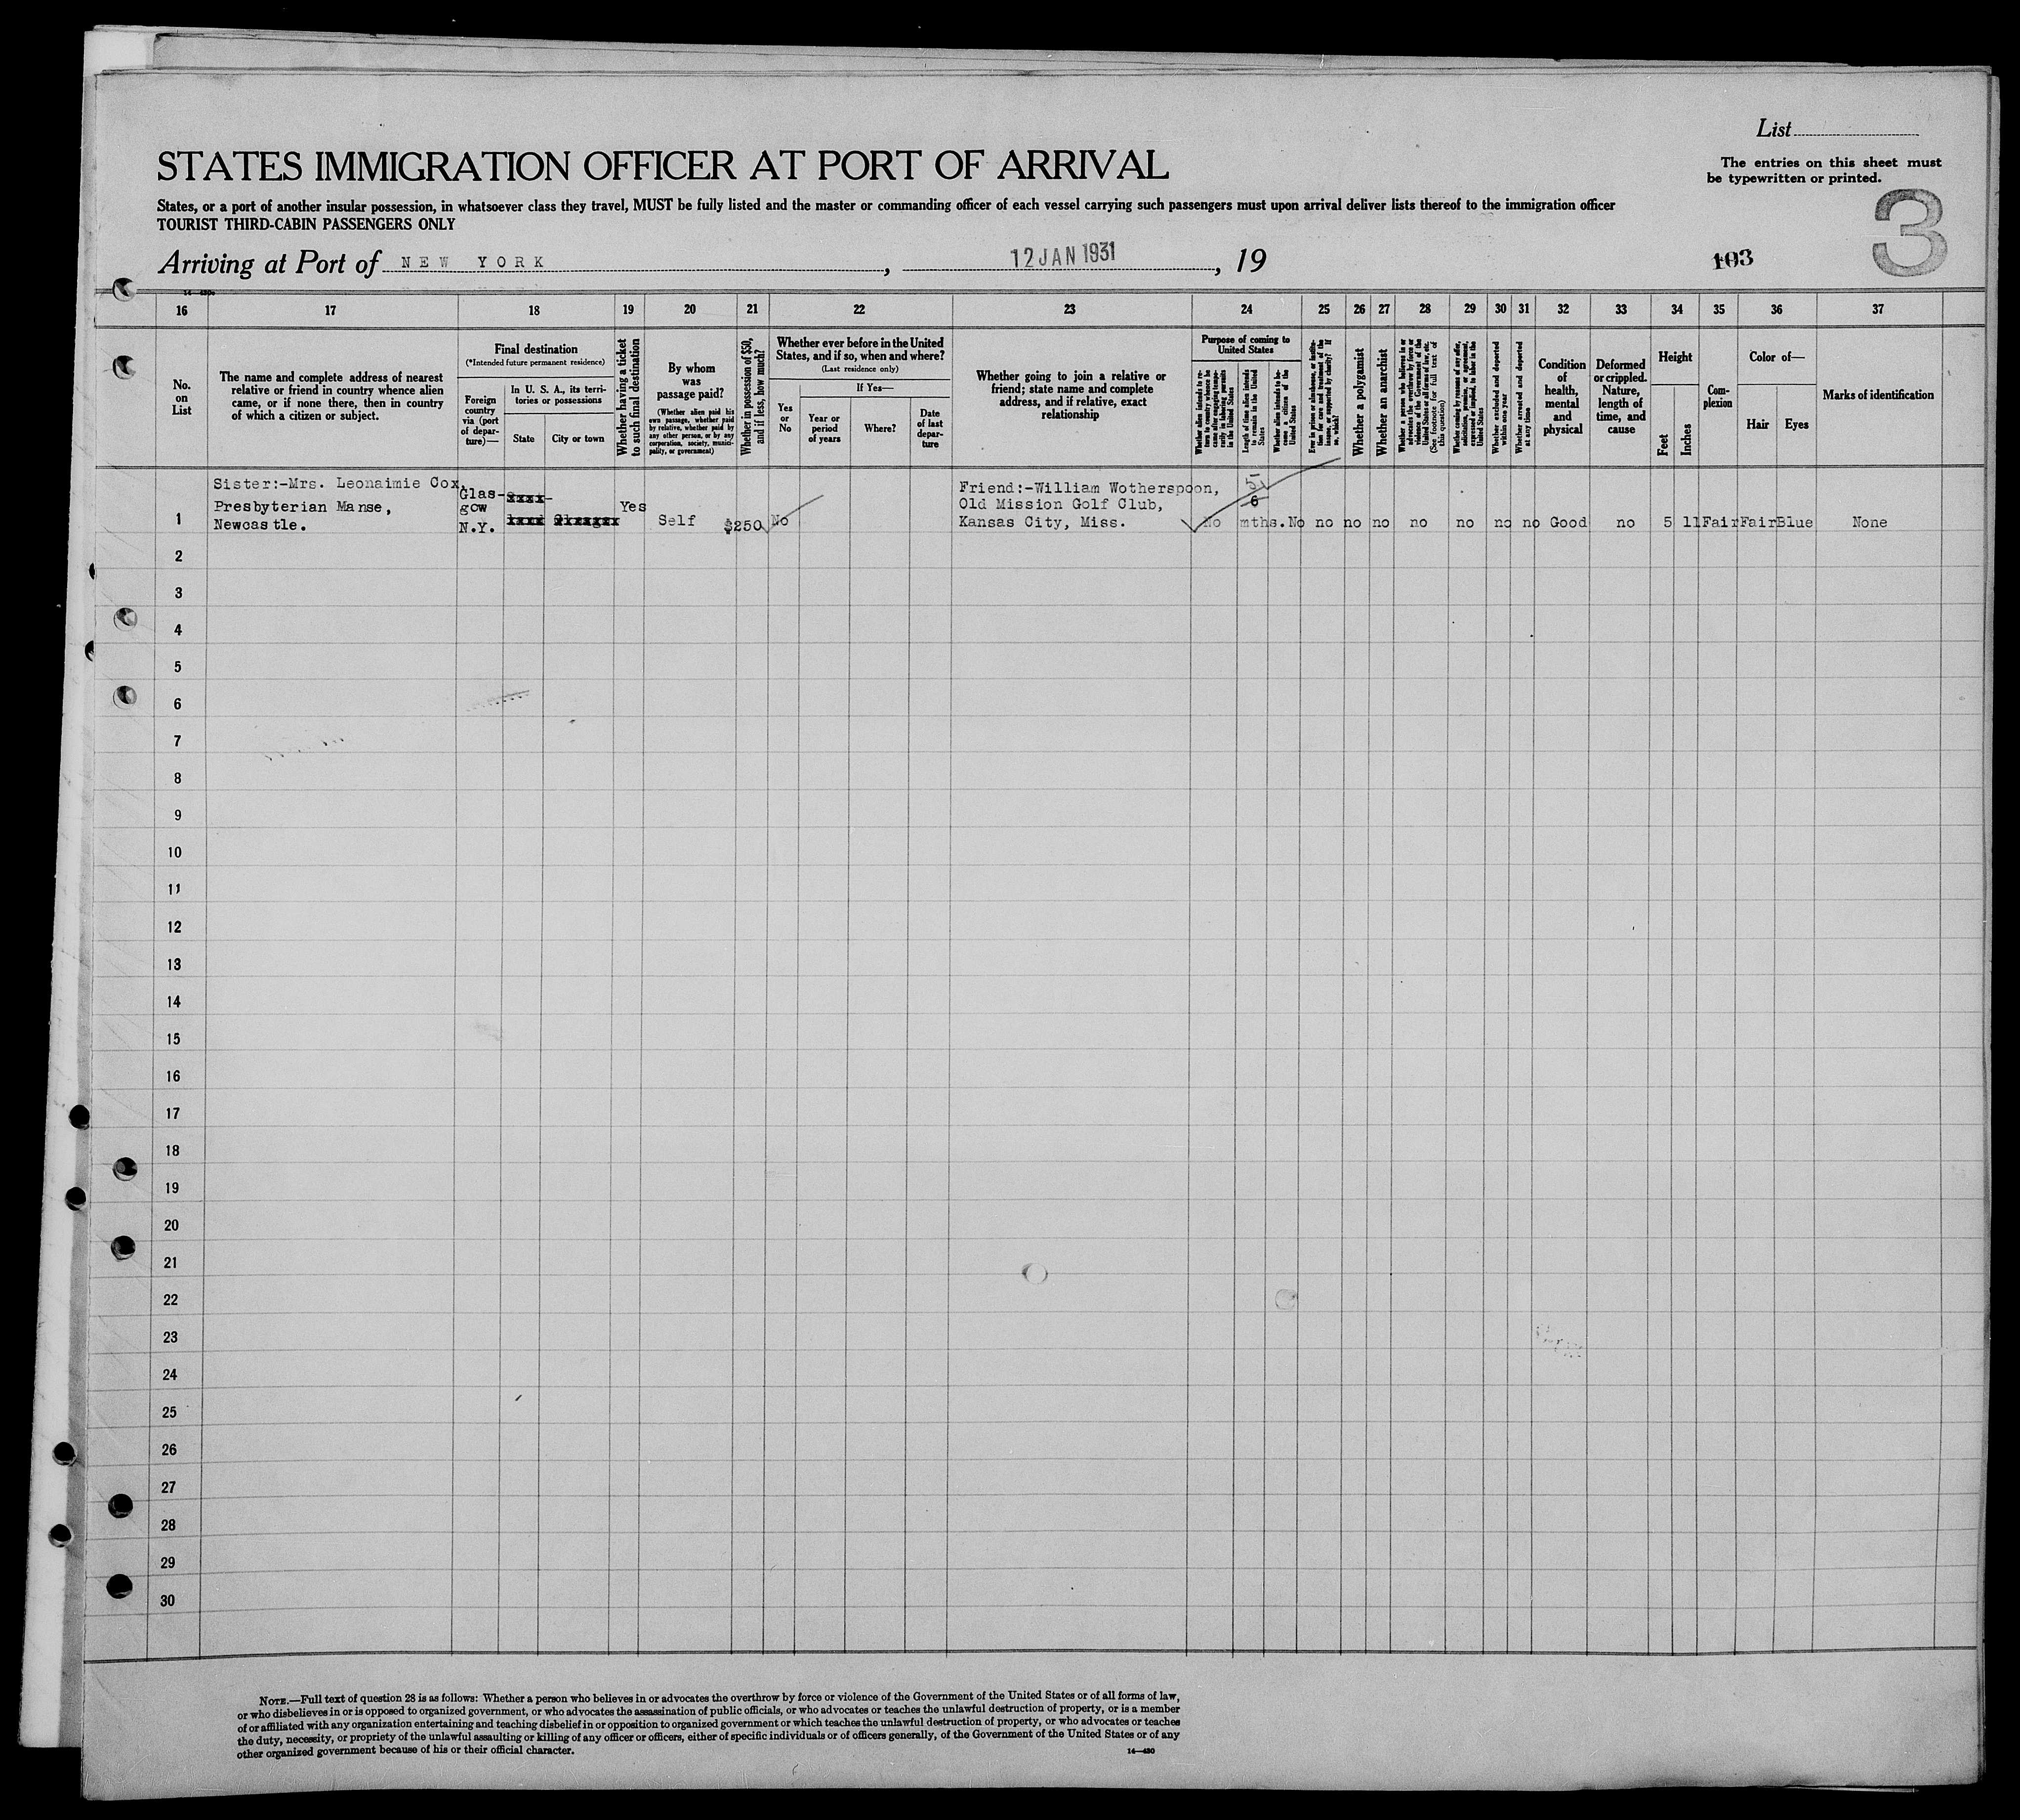 List
STATES IMMIGRATION OFFICER AT PORT OF ARRIVAL
The entries on this sheet must
be typewritten or printed.
States, or a port of another insular possession, in whatsoever class they travel, MUST be fully listed and the master or commanding officer of each vessel carrying such passengers must upon arrival deliver lists thereof to the immigration officer
TOURIST THIRD-CABIN PASSENGERS ONLY
3
Arriving at Port of NEW YORK, 12 JAN 1931, 19
103
16 17 18 19 20 21 22 23 24 25 26 27 28 29 30 31 32 33 34 35 36 37
No.
on
List
The name and complete address of nearest
relative or friend in country whence alien
came, or if none there, then in country
of which a citizen or subject.
Final destination
(*Intended future permanent residence)
Foreign
country
via (port
of depar-
ture)—
In U. S. A., its terri-
tories or possessions
State
City or town
Whether having a ticket
to such final destination
By whom
was
passage paid?
(Whether alien paid his
own passage, whether paid
by relative, whether paid by
any other person, or by any
corporation, society, munici-
pality, or government)
Whether in possession of $50,
and if less, how much?
Whether ever before in the United
States, and if so, when and where?
(Last residence only)
Yes
or
No
If Yes—
Year or
period
of years
Where?
Date
of last
depar-
ture
Whether going to join a relative or
friend; state name and complete
address, and if relative, exact
relationship
Purpose of coming to
United States
Whether alien intends to re-
turn to country whence he
came after engaging tempo-
rarily in laboring pursuits
in the United States
Length of time alien intends
to remain in the United
States
Whether alien intends to be-
come a citizen of the
United States
Ever in prison or almshouse, or institu-
tion for care and treatment of the
insane, or supported by charity? If
so, which?
Whether a polygamist
Whether an anarchist
Whether a person who believes in or
advocates the overthrow by force or
violence of the Government of the
United States or all forms of law, etc.
(See footnote for full text of
this question)
Whether coming by reason of any offer,
solicitation, promise, or agreement,
expressed or implied, to labor in the
United States
Whether excluded and deported
within one year
Whether arrested and deported
at any time
Condition
of
health,
mental
and
physical
Deformed
or crippled.
Nature,
length of
time, and
cause
Height
Feet
Inches
Com-
plexion
Color of—
Hair
Eyes
Marks of identification
1
Sister:-Mrs. Leonaimie Cox,
Presbyterian Manse,
Newcastle.
Glas-
gow
N.Y.
Yes
Self
$250
No
Friend:-William Wotherspoon,
Old Mission Golf Club,
Kansas City, Miss.
5
6
No mths. No no no no no no no no Good no 5 11 Fair Fair Blue None
2
3
4
5
6
7
8
9
10
11
12
13
14
15
16
17
18
19
20
21
22
23
24
25
26
27
28
29
30
NOTE.—Full text of question 28 is as follows: Whether a person who believes in or advocates the overthrow by force or violence of the Government of the United States or of all forms of law,
or who disbelieves in or is opposed to organized government, or who advocates the assassination of public officials, or who advocates or teaches the unlawful destruction of property, or is a member
of or affiliated with any organization entertaining and teaching disbelief in or opposition to organized government or which teaches the unlawful destruction of property, or who advocates or teaches
the duty, necessity, or propriety of the unlawful assaulting or killing of any officer or officers, either of specific individuals or of officers generally, of the Government of the United States or of any
other organized government because of his or their official character.
14—430